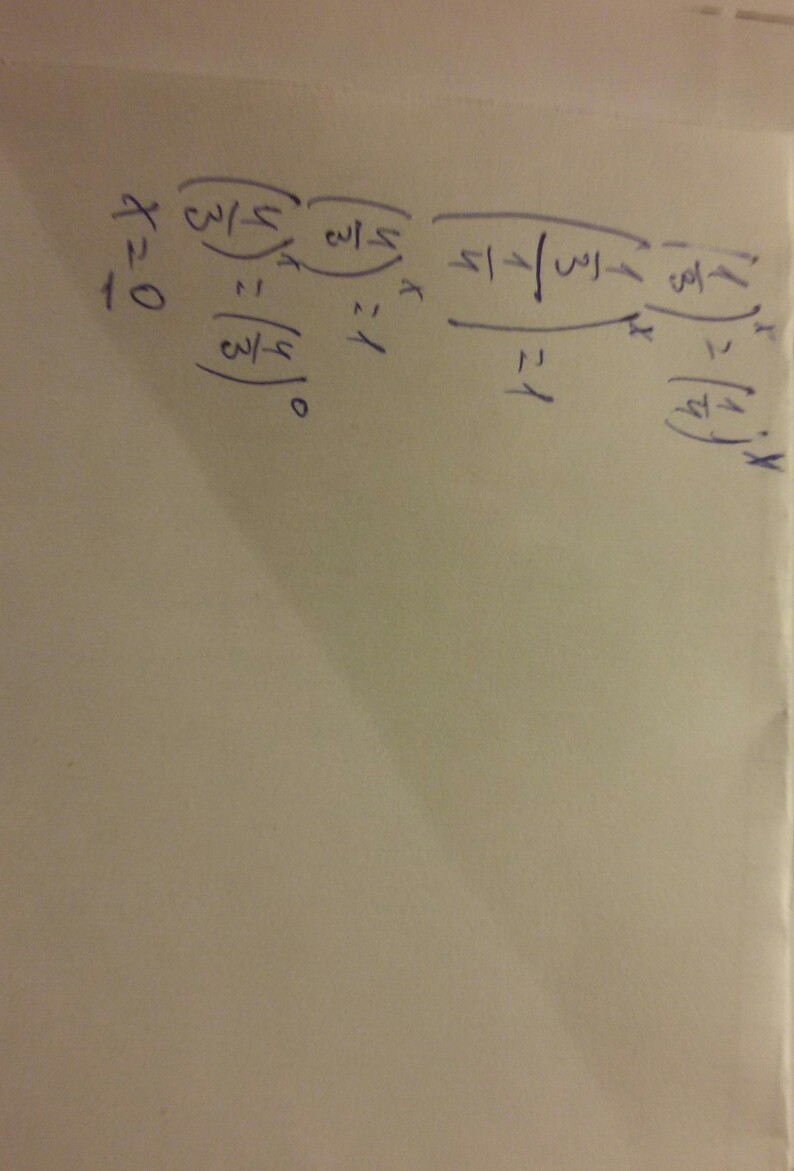 (1/3)^x = (1/4)^x
((1/3)/(1/4))^x = 1
(4/3)^x = 1
(4/3)^x = (4/3)^0
x = 0